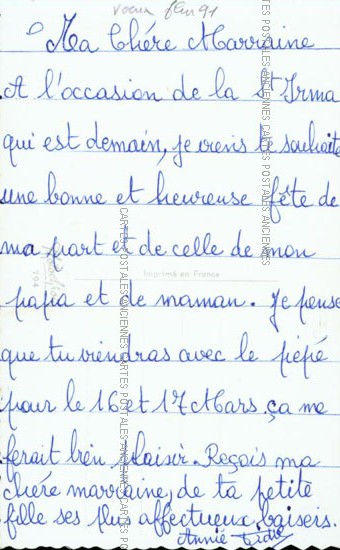 voeux fév 91
Ma Chére Marraine
A l'occasion de la St Irma
qui est demain, je viens te souhaite
une bonne et heureuse fête de
ma part et de celle de mon
Imprimé en France
704
papa et de maman. Je pense
que tu viendras avec le pépé
pour le 16 et 17 Mars. ça me
ferait bien plaisir. Reçois ma
chére marraine, de ta petite
fille ses plus affectueux baisers.
Annie
CARTES POSTALES ANCIENNES CARTES POSTALES ANCIENNES
CARTES POSTALES ANCIENNES CARTES POSTALES ANCIENNES